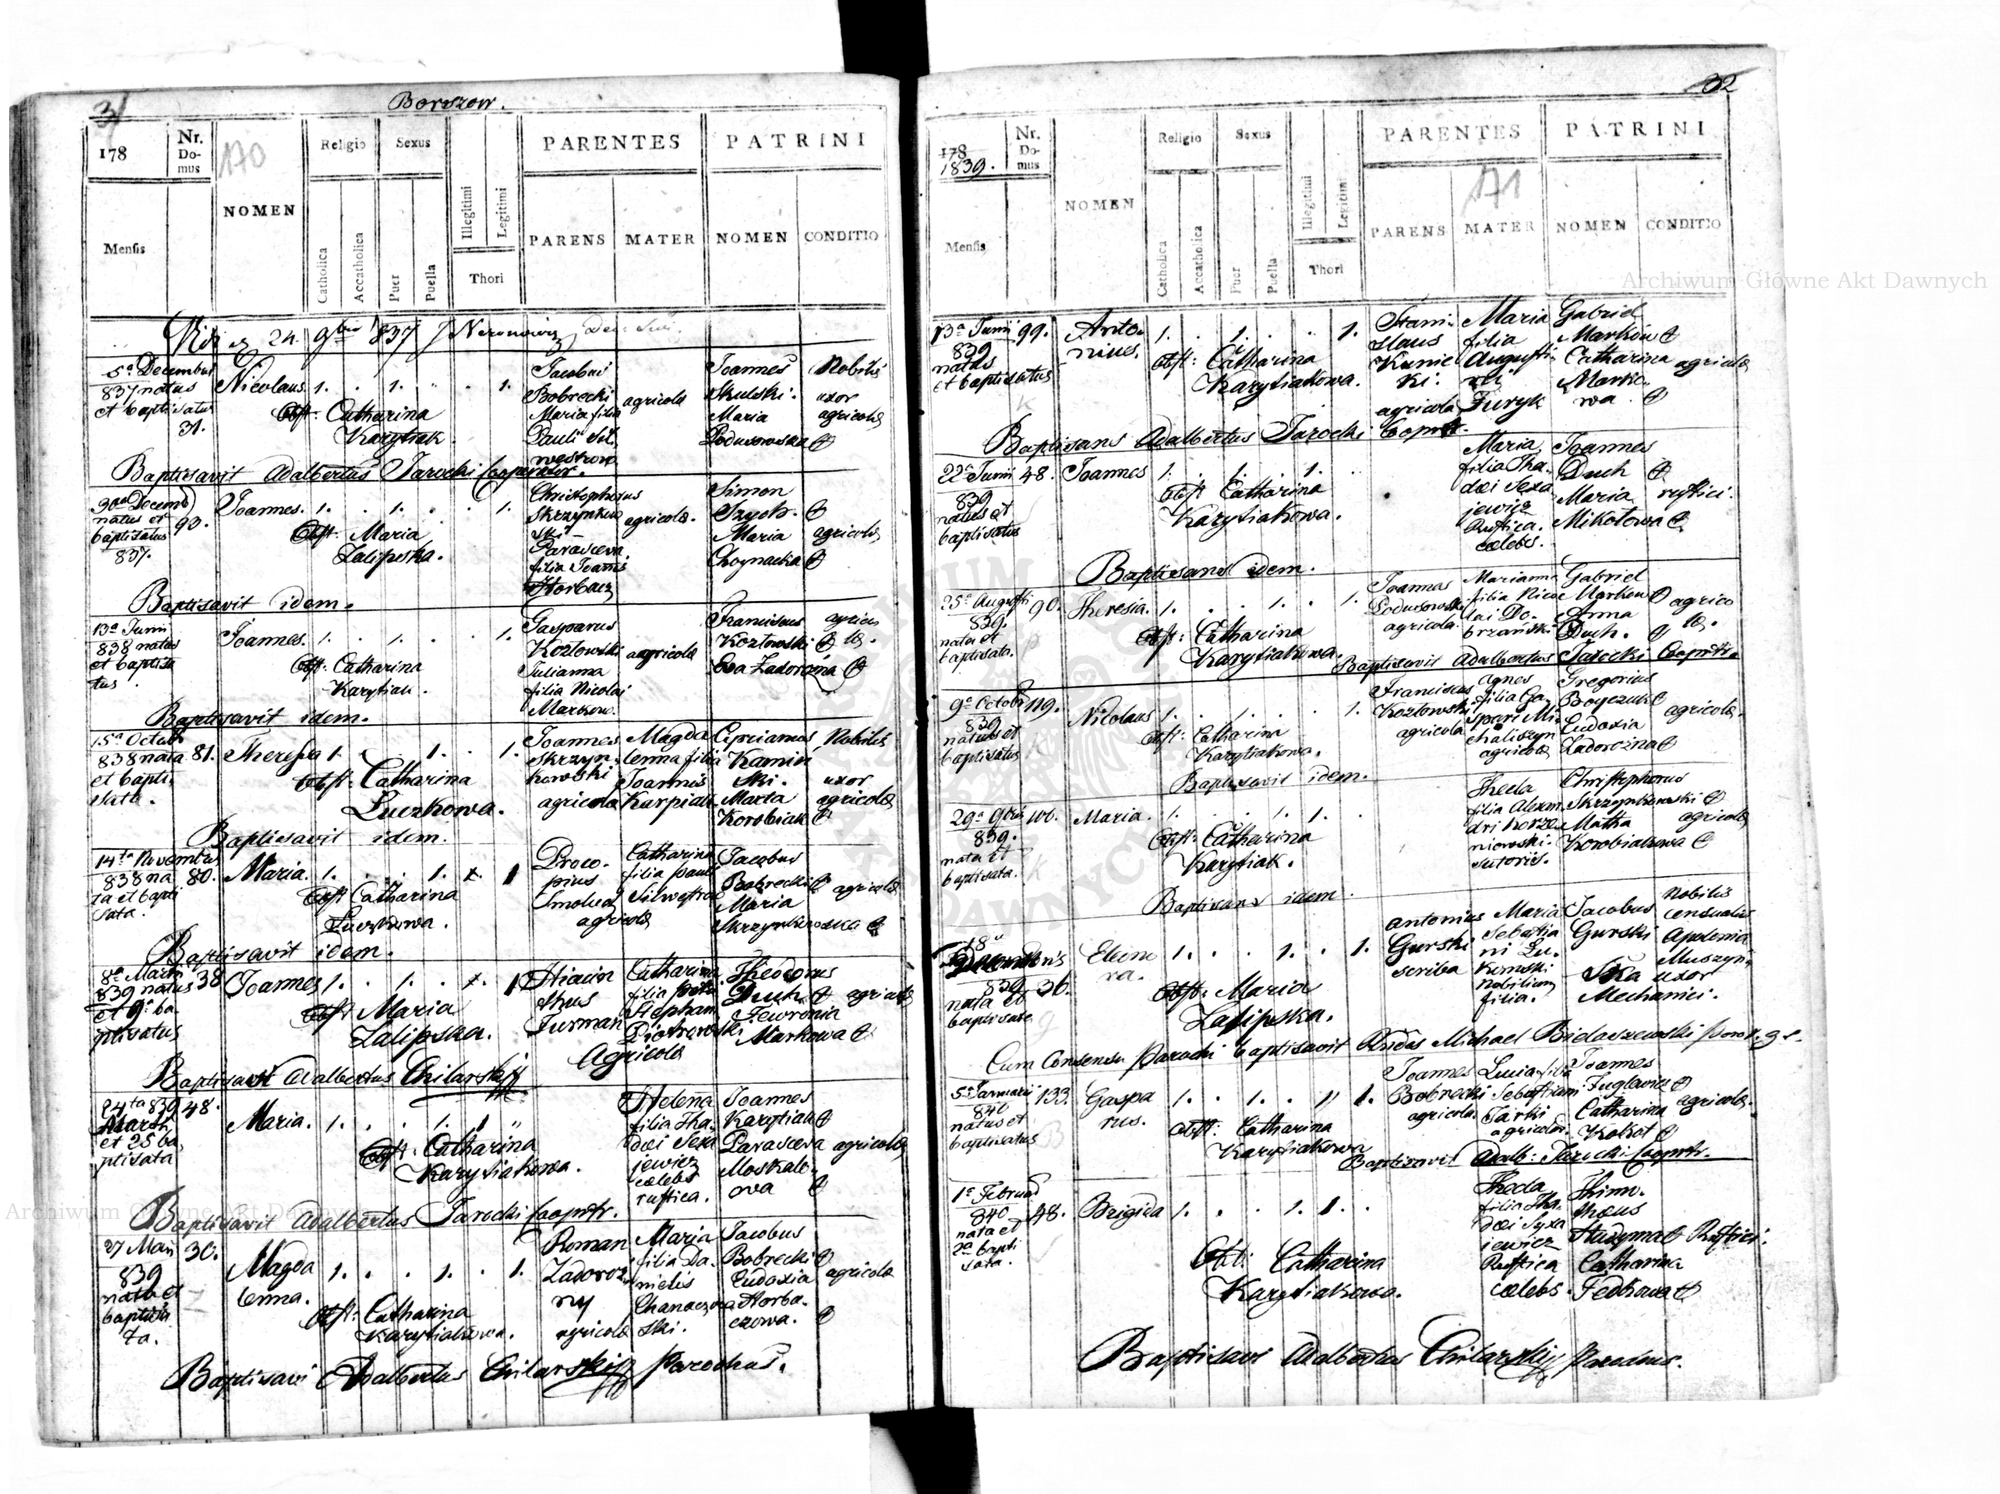 31
Borszow.
178
Nr. Do-mus
170
NOMEN
Religio
Sexus
PARENTES
PATRINI
Mensis
Catholica
Accatholica
Puer
Puella
Illegitimi
Legitimi
Thori
PARENS
MATER
NOMEN
CONDITIO
Vidi 24 9bris 837
5a Decembris
837 natus
et baptisatus
31.
Nicolaus 1. . 1. . . 1.
Obst: Catharina
Karytiak.
Jacobus
Bobrecki
Maria filia
Pauli Sil
westrow
agricolæ
Joannes
Skulski.
Maria
Podusowska
Nobilis
uxor
agricolæ
Baptisavit Adalbertus Tarocki Cooperator.
Decemb
natus et
baptisatus
837.
93.
Joannes. 1. . 1. . . 1.
Obst: Maria
Zalipska.
Christophorus
Skrzynkow
ski
Parasceva
filia Joannis
Horbacz
agricolæ.
Simon
Szych.
Maria
Choynacka
agricolæ
Baptisavit idem.
13a Junii
838 natus
et baptisa
tus.
Joannes. 1. . 1. . . 1.
Obst: Catharina
Karytiak.
Gasparus
Kozłowski
Julianna
filia Nicolai
Markow.
agricolæ
Franciscus
Kozłowski
Eva Zadorozna
agrico
læ.
Baptisavit idem.
15a Octobr
838 nata
et bapti
sata.
81.
Theresia 1. . . 1. . 1.
Obst: Catharina
Luczkowa.
Joannes
Skrzyn
kowski
agricola
Magda
lenna filia
Joannis
Karpiak
Cyprianus
Kamin
ski.
Marta
Korobiak
Nobilis
uxor
agricolæ
Baptisavit idem.
14ta Novembris
838 na
ta et bapti
sata.
80.
Maria. 1. . . 1. x. 1
Obst Catharina
Luczkowa.
Proco
pius
agricolæ
Catharina
filia Pauli
Silwestrow
Jacobus
Bobrecki
Maria
Skrzynkowska
agricolæ
Baptisavit idem.
8a Martii
839 natus
et 9a ba
ptisatus
38
Joannes 1. . 1. . x. 1
Obst Maria
Zalipska.
Hiacin
thus
Furman
Catharina
filia
Stephani
Piotrowski
Agricolæ
Theodorus
Duch
Fewronia
Markowa
agricolæ
Baptisavit Adalbertus Chilarski
24ta 839
Martii
et 25 ba
ptisata
48.
Maria. 1. . . 1. 1 "
Obst: Catharina
Karytiakowa.
Helena
filia Tha
dæi Sexa
jewicz
cælebs
rustica.
Joannes
Karytiak
Parasceva
Moskalo
wa
agricolæ
Baptisavit Adalbertus Tarocki Cooprtr.
27 Maii
839
nata et
baptisa
ta.
30.
Magda
lenna.
1. . . 1. . 1.
Obst: Catharina
Karytiakowa.
Roman
Zadoroz
ny
agricola
Maria
filia Da
nielis
ski.
Jacobus
Bobrecki
Eudoxia
Horba
czowa.
agricolæ
Baptisavi Adalbertus Chilarski Parochus.
32
178
1839.
Nr. Do-mus
NOMEN
Religio
Sexus
PARENTES
PATRINI
171
Mensis
Catholica
Accatholica
Puer
Puella
Illegitimi
Legitimi
Thori
PARENS
MATER
NOMEN
CONDITIO
13a Junii
839
natus
et baptisatus
99.
Anto
nius.
1. . 1. . . 1.
Obst: Catharina
Karytiakowa.
Stani
slaus
Kunic
ki.
agricola
Maria
filia
Augusti
ni
Juryk
Gabriel
Markow
Catharina
Marko
wa.
agricolæ
Baptisans Adalbertus Tarocki Cooprtr.
22a Junii
839
natus et
baptisatus
48.
Joannes 1. . 1. . 1. .
Obst Catharina
Karytiakowa.
Maria
filia Tha
dæi Sexa
jewicz
Rustica.
cælebs.
Joannes
Duch
Maria
Mikołowa
rustici.
Baptisans idem.
25a Augusti
839.
nata et
baptisata.
90.
Theresia. 1. . . 1. . 1.
Obst: Catharina
Karytiakowa.
Joannes
Podusowski
agricola.
Marianna
filia Nico
lai Do
brzański
Gabriel
Markow
Anna
Duch.
agrico
læ.
Baptisavit Adalbertus Tarocki Cooprtr
9a Octobr
839
natus et
baptisatus
119.
Nicolaus 1. . 1. . . 1.
Obst: Catharina
Karytiakowa.
Franciscus
Kozłowski
agricola
Agnes
filia Ga
spari Mi
chaliszyn
agricolæ
Gregorius
Boyczuk
Eudoxia
Zadorozna
agricolæ.
Baptisavit idem.
29a 9bris
839.
nata et
baptisata.
101.
Maria. 1. . . 1. 1. .
Obst: Catharina
Karytiak.
Thecla
filia Alexan
dri Korze
niowski
sutoris.
Christophorus
Skrzynkowski
Martha
Korobiakowa
agricolæ
Baptisans idem.
18a
Decembris
839
nata et
baptisata
36.
Eleono
ra.
1. . . 1. . 1.
Obst: Maria
Zalipska.
Antonius
Gurski
scriba
Maria
Sebastia
ni Lu
komski
nobilium
filia.
Jacobus
Gurski
Mechanici.
Nobilis
censualis
Apolonia
Muszyn
ska uxor
Cum Consensu Parochi baptisavit Andreas Michael Bielaszewski Paroch. g. c.
5a Januarii
840
natus et
baptisatus
133.
Gaspa
rus.
1. . 1. . " 1.
Obst: Catharina
Karytiakowa
Joannes
Bobrecki
agricola.
Lucia filia
Sebastiani
Tarki
agricolæ.
Joannes
Juglewicz
Catharina
Kokot
agricolæ.
Baptisavit Adalb: Tarocki Cooprtr.
1a Februarii
840
nata et
2a bapti
sata.
48.
Brigida 1. . . 1. 1. .
Obst: Catharina
Karytiakowa.
Thecla
filia Tha
dæi Sexa
jewicz
Rustica
cælebs.
Thimo
theus
Hadyma
Catharina
Fedkowa
Rustici.
Baptisavi Adalbertus Chilarski Parochus.
Archiwum Główne Akt Dawnych
Archiwum Główne Akt Dawnych